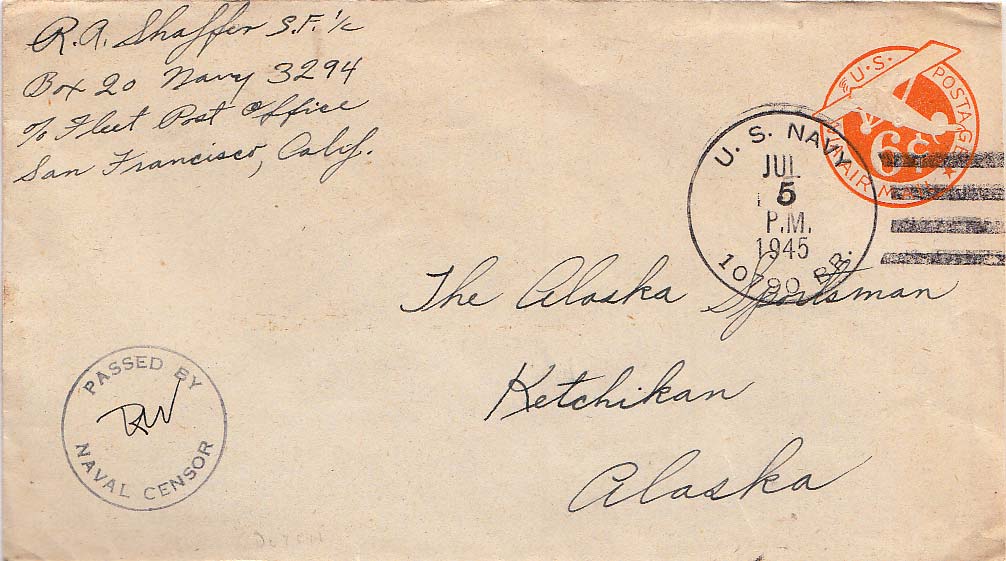 R.A. Shaffer S.F. 1/c
Box 20 Navy 3294
℅ Fleet Post Office
San Francisco, Calif.
U.S. POSTAGE
6¢
AIR MAIL
U. S. NAVY
JUL
5
P.M.
1945
10790 BR.
The Alaska Sportsman
Ketchikan
Alaska
PASSED BY
NAVAL CENSOR